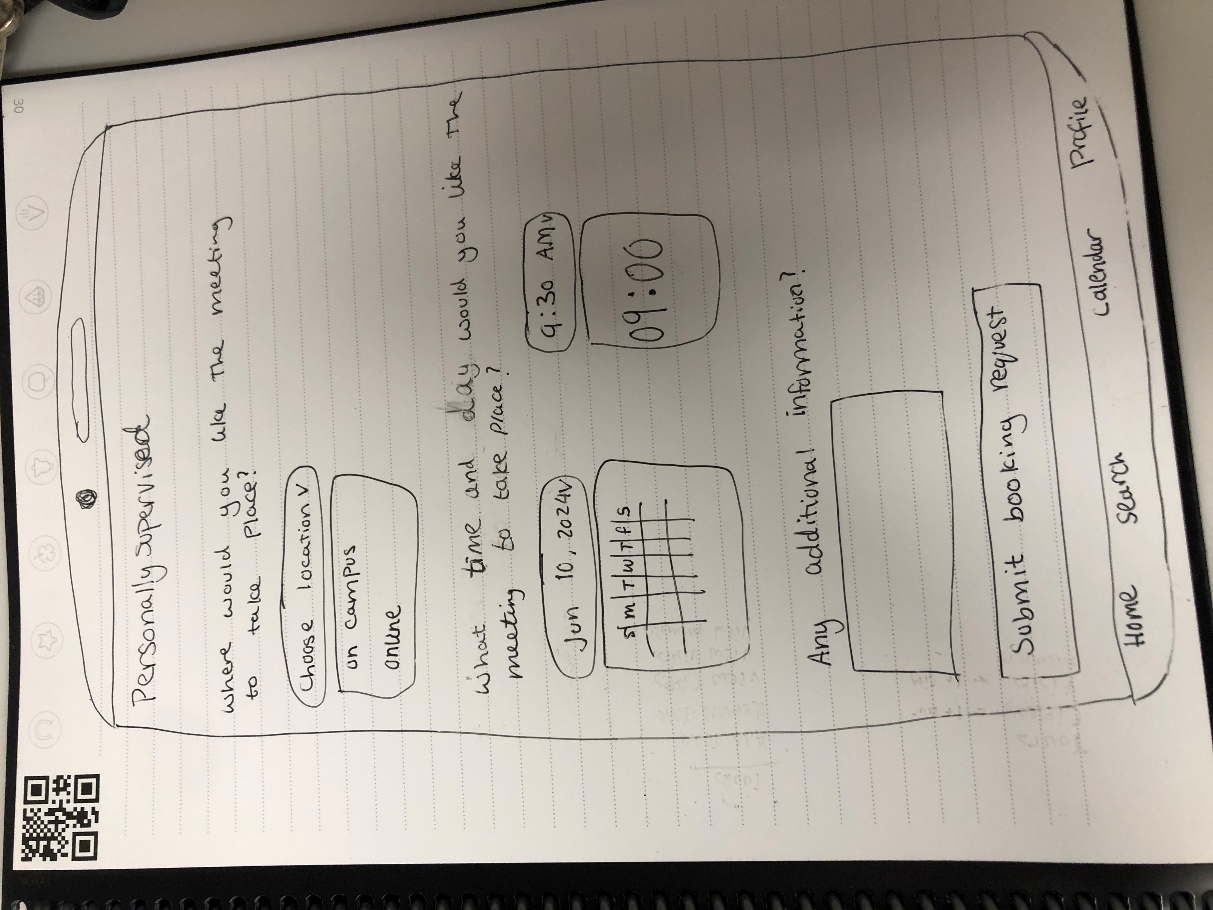 30
Personally supervised
Where would you like the meeting
to take place?
Choose location v
on campus
online
What time and day would you like the
meeting to take place?
Jun 10, 2024 v
9:30 AM v
S M T W T F S
09:00
Any additional information?
Submit booking request
Home Search Calendar Profile